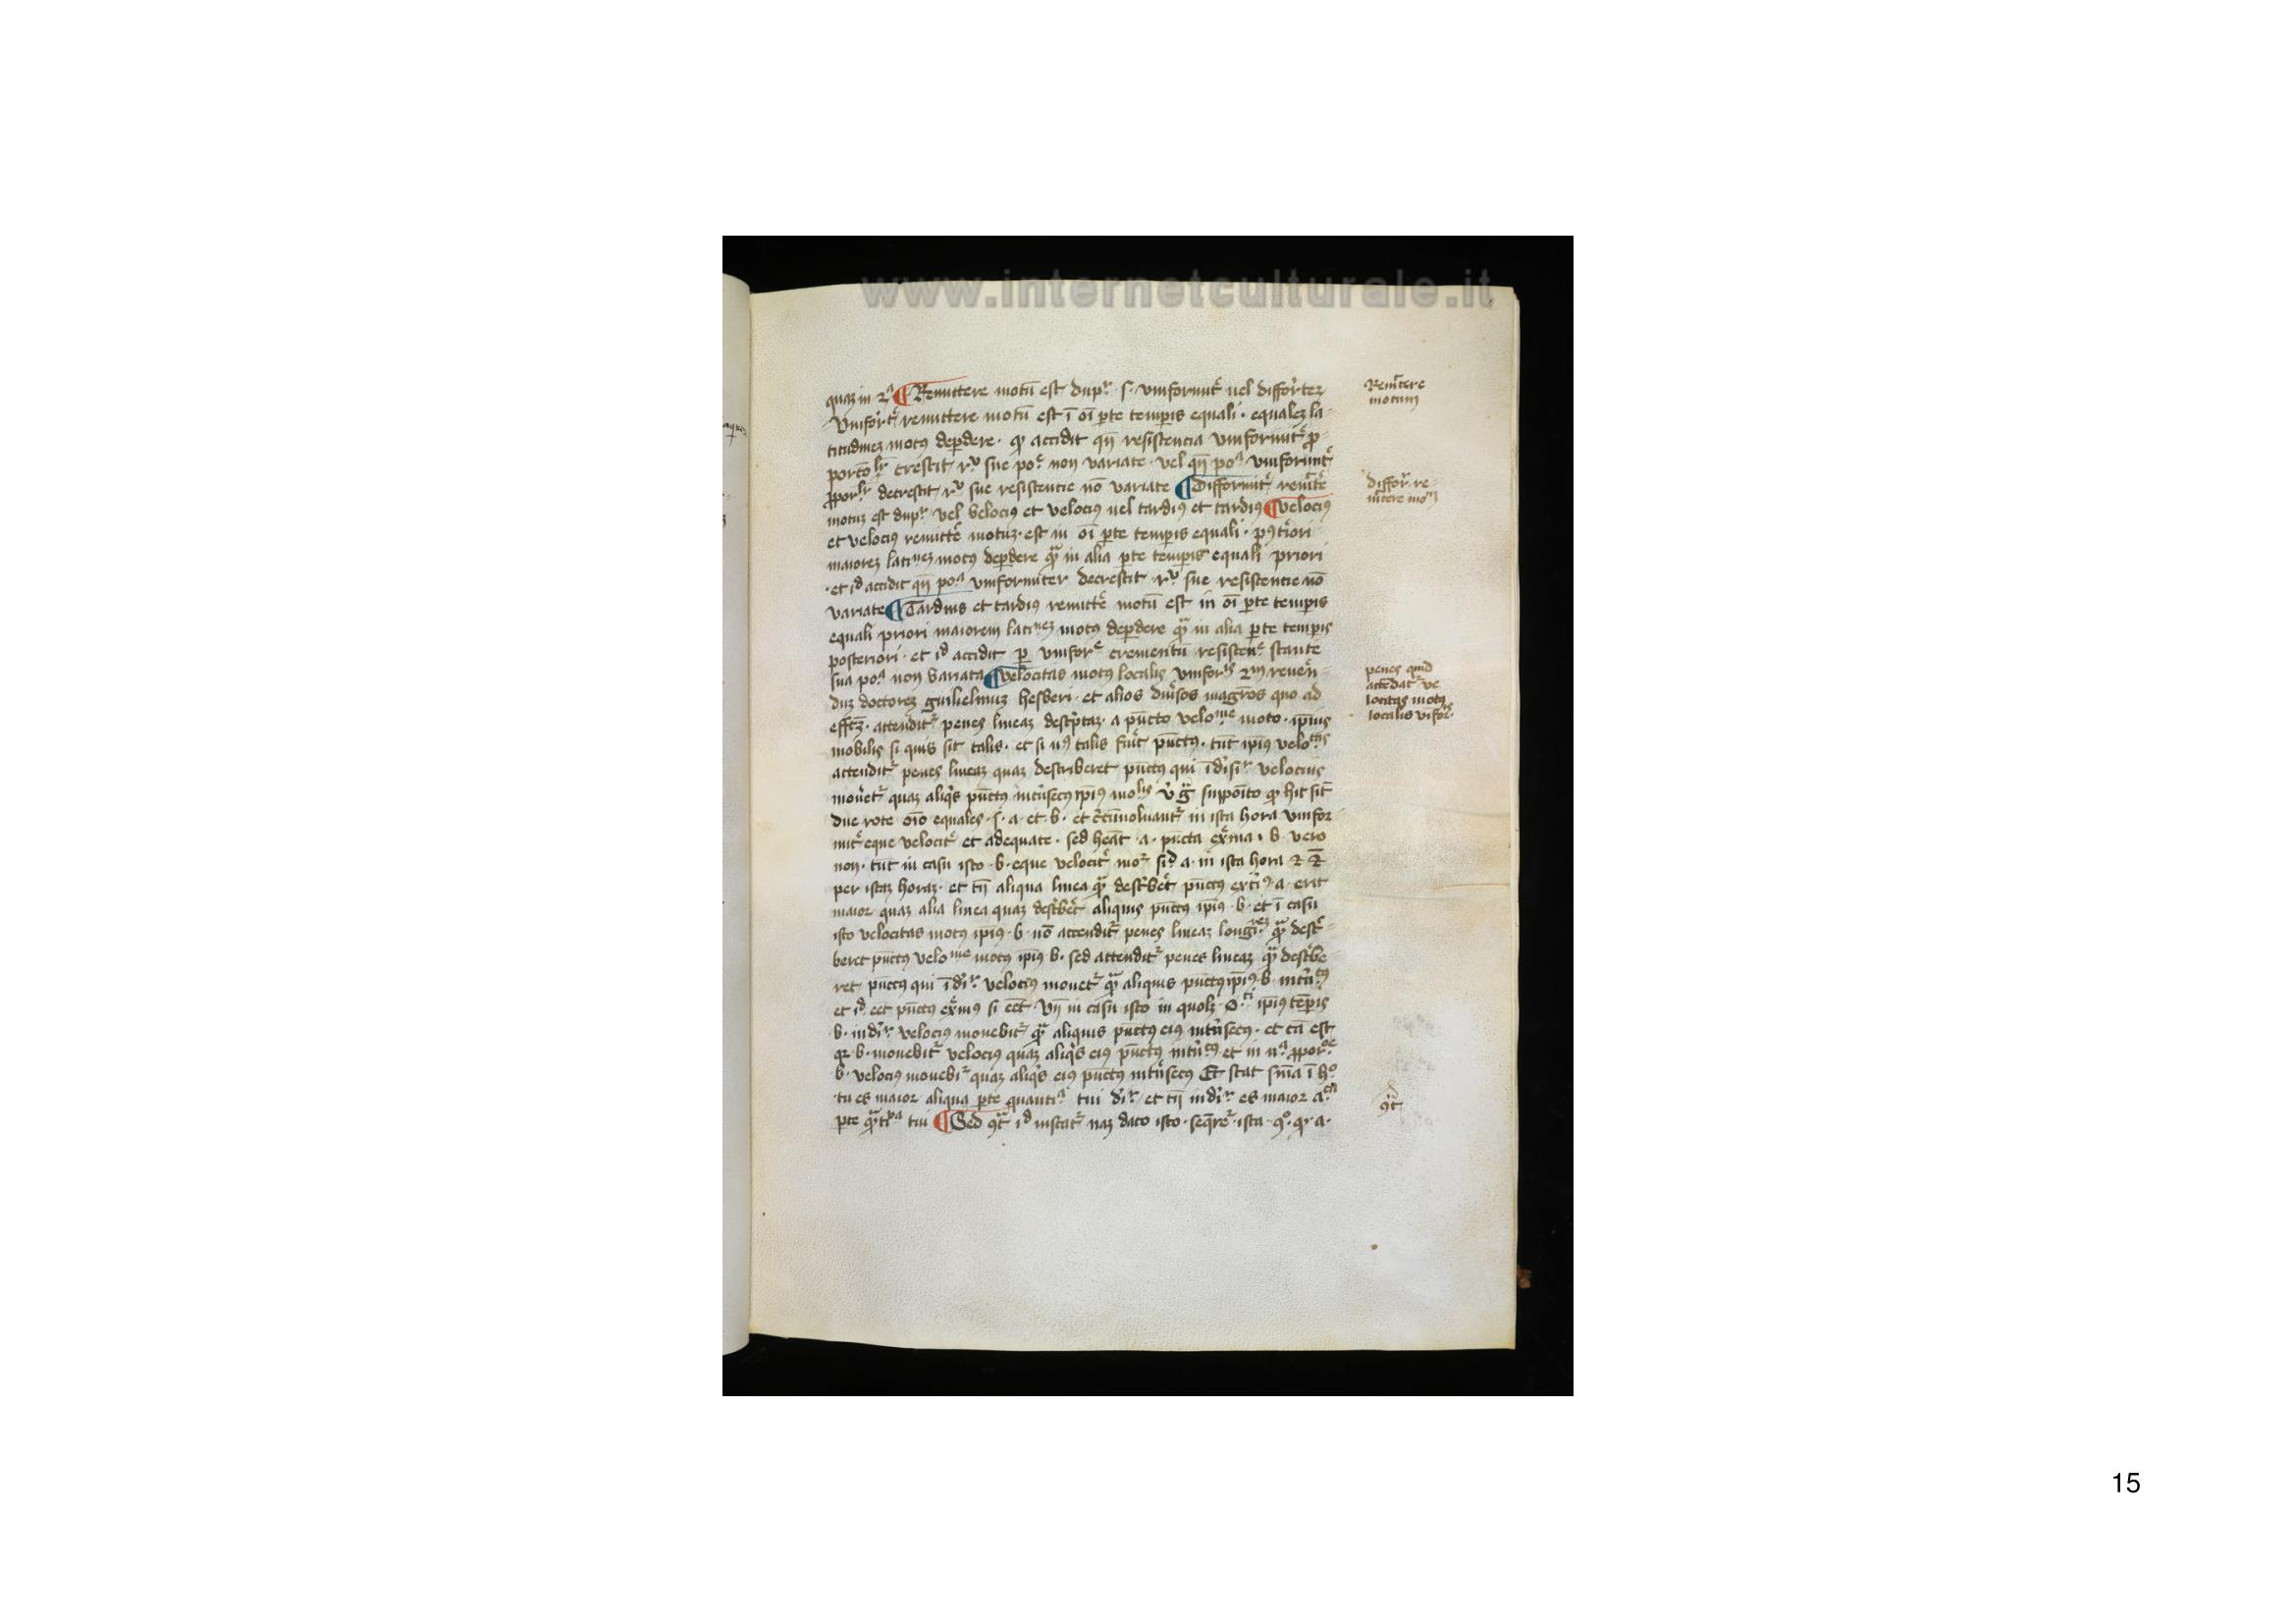 www.internetculturale.it
quaz in 2ª ¶ Remittere motū est dupʳ · s · uniformit᷑ uel difforʳteʒ
Unifoʳt᷑ remittere motū est ī oī ꝑte temꝑis equali · equaleʒ la-
titudineʒ motꝰ deꝑdere · ꝙ accidit qn̄ resistencia uniformit᷑ ꝓ-
portōˡʳ crescit rᵘ sue poᵉ non variate · vel qn̄ poª uniformit᷑
ꝓporˡʳ decrescit rᵘ sue resistentie nō variate ¶ Difformit᷑ remitt᷑e
motuʒ est dupʳ vel velociꝰ et velociꝰ uel tardiꝰ et tardiꝰ ¶ velociꝰ
et velociꝰ remitt᷑e motuʒ · est in oī ꝑte temꝑis equali · pꝰt᷑iori
maioreʒ latiⁿᵉʒ motꝰ deꝑdere qª̄ in alia ꝑte temꝑis equali priori
· et id accidit qn̄ poª uniformiter decrescit rᵘ sue resistentie nō
variate ¶ Tardius et tardiꝰ remitt᷑e motū est in oī ꝑte temꝑis
equali priori maiorem latiⁿᵉʒ motꝰ deꝑdere qª̄ in alia ꝑte temꝑis
posteriori · et id accidit ꝑ uniforᵉ crementū resistenᵉ stante
sua poª non variata ¶ velocitas motꝰ localis uniforⁱˢ 2m reuerē-
duʒ doctoreʒ guilielmuʒ hesberi · et alios diu᷑sos magr̄os quo ad
effc̄ʒ · attendit᷑ penes lineaʒ descͥptaʒ · a pūcto veloᵐᵉ moto · ip̄ius
mobilis si quis sit talis · et si nꝰ talis fuīt pūctꝰ · tūc ip̄iꝰ veloᵗᵃˢ
attendit᷑ penes lineaʒ quaʒ describeret pūctꝰ qui īdīsiʳ velocius
mou᷑et᷑ quaʒ aliqͥs pūctꝰ intͥnsecꝰ ip̄iꝰ moˡⁱˢ vͥ gª̄ suppoīto ꝙ hic sīt
due rote oīo equales · s · a · et · b · et c᷑cūuoluant᷑ in ista hora unifor
mit᷑ eque velocit᷑ et adequate · sed heāt · a · pūcta ext᷑ma · b · vero
non · tūc in casu isto · b · eque velocit᷑ mo᷑ sīd a · in ista hora 2 2̄
per istaʒ horaʒ · et tn̄ aliqua linea qª̄ descͥbet᷑ pūctꝰ extͥꝰ · a · erit
maior quaʒ alia linea quaʒ descͥbet᷑ aliquis pūctꝰ ip̄iꝰ · b · et ī casu
isto velocitas motꝰ ip̄iꝰ · b · nō attendit᷑ penes lineaʒ longiᵉʒ qª̄ descͥ-
beret pūctꝰ veloᵐᵉ motꝰ ip̄iꝰ b · sed attendit᷑ penes lineaʒ qª̄ descͥbe-
ret pūctꝰ qui īdīʳ velociꝰ mouet᷑ qª̄ aliquis pūctꝰ ip̄iꝰ b · intͥⁿᶜꝰ
et id eēt pūctꝰ ext᷑mꝰ si eēt · Vn̄ in casu isto in quolʒ ip̄iꝰ tēꝑis
b · indīʳ velociꝰ mouebit᷑ qª̄ aliquis pūctꝰ eiꝰ intͥnsecꝰ · et cā est
qꝛ b · mouebit᷑ velociꝰ quaʒ aliqͥs eiꝰ pūctꝰ intͥⁿᶜꝰ et in nª ꝓporᵒᵉ
b · velociꝰ mouebi᷑ quaʒ aliqͥs eiꝰ pūctꝰ intͥnsecꝰ Et stat sīn̄a ī hᵒ
tu es maior aliqua ꝑte quantiª tui dīʳ · et tn̄ indīʳ es maior
ꝑte qª̄tiᵖª tui ¶ Sed ꝯͣ id instat᷑ naʒ dato isto · seq̄ret᷑ · ista · ꝯᵒ · ꝙ · a ·
Remit᷑tere
motum
difforʳ · re
mit᷑tere moᵐ
penes quid
attēdat᷑ ve
locitas motꝰ
localis uīforⁱˢ
ꝯͣ
15